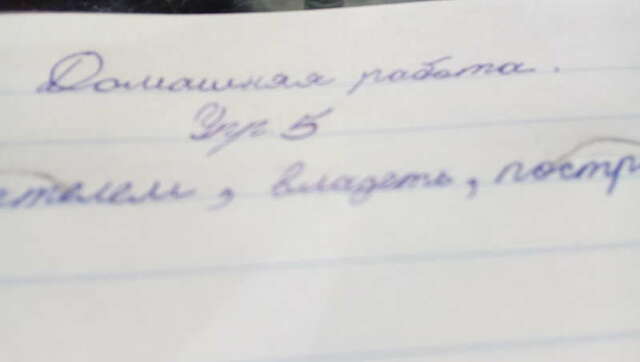 Домашняя работа.
Упр 5
ителем, владеть, постр